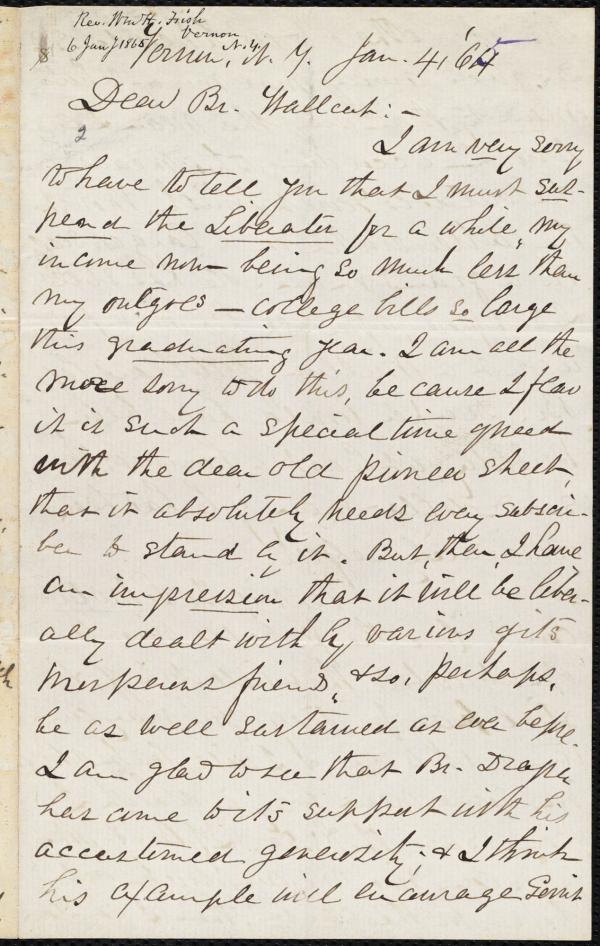 Rev. Wm H. Fish
Vernon N.Y.
6 Jany 1865
Vernon, N. Y. Jan. 4, '65
Dear Br. Wallcut: -
2
I am very sorry
to have to tell you that I must sus-
pend the Liberator for a while, my
income now being so much less than
my outgoes — college bills so large
this graduating year. I am all the
more sorry to do this, because I fear
it is such a special time of need
with the dear old pioneer sheet,
that it absolutely needs every subscri-
ber to stand by it. But, then, I have
an impression that it will be liber-
ally dealt with by various of its
prosperous friends, & so, perhaps,
be as well sustained as ever before.
I am glad to see that Br. Draper
has come to its support with his
accustomed generosity; & I think
his example will encourage Gerrit